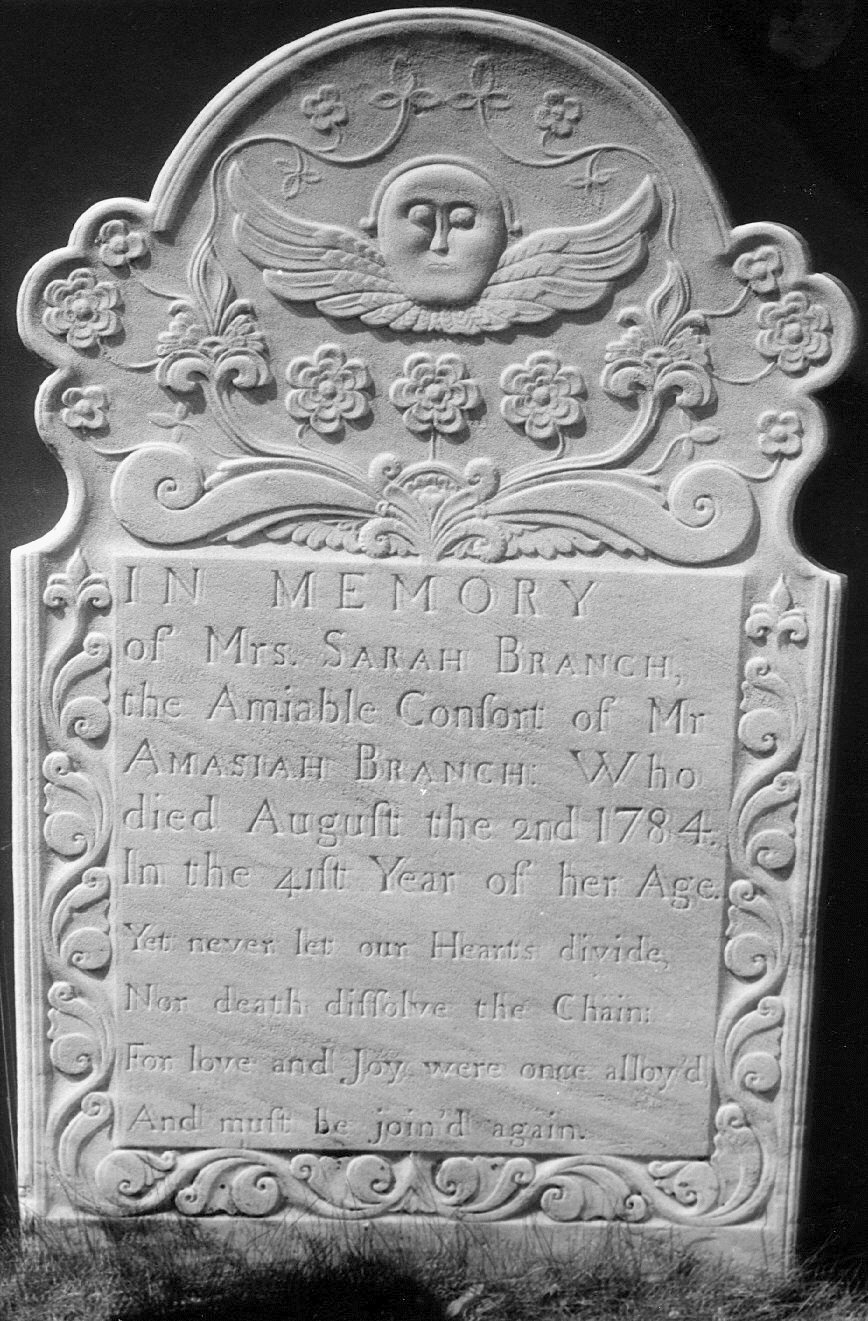 IN MEMORY
of Mrs. SARAH BRANCH,
the Amiable Conſort of Mr
AMASIAH BRANCH: Who
died Auguſt the 2nd 1784.
In the 41ſt Year of her Age.
Yet never let our Hearts divide,
Nor death diſſolve the Chain:
For love and Joy were once alloy'd
And muſt be join'd again.